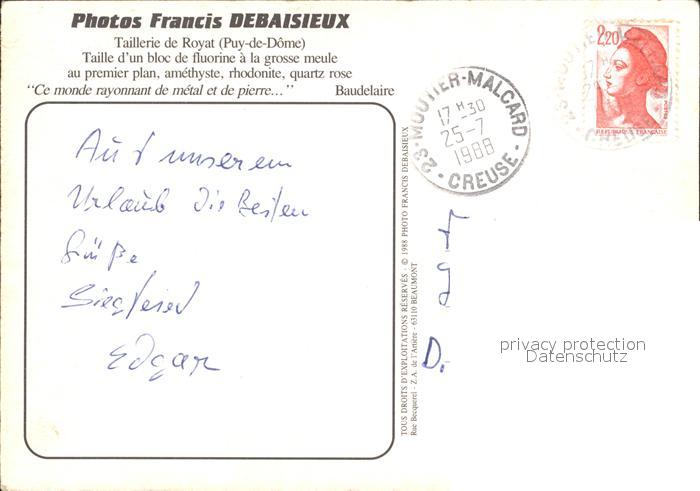 Photos Francis DEBAISIEUX
Taillerie de Royat (Puy-de-Dôme)
Taille d'un bloc de fluorine à la grosse meule
au premier plan, améthyste, rhodonite, quartz rose
"Ce monde rayonnant de métal et de pierre..." Baudelaire
Auf unserem
Urlaub die Besten
Grüße
Siegfried
Edgar
TOUS DROITS D'EXPLOITATIONS RÉSERVÉS - © 1988 PHOTO FRANCIS DEBAISIEUX
Rue Becquerel - Z.A. de l'Artière - 63110 BEAUMONT
23 - MOUTIER-MALCARD
17 H 30
25-7
1988
- CREUSE -
2,20
RÉPUBLIQUE FRANÇAISE
CREUSE
D.
privacy protection
Datenschutz